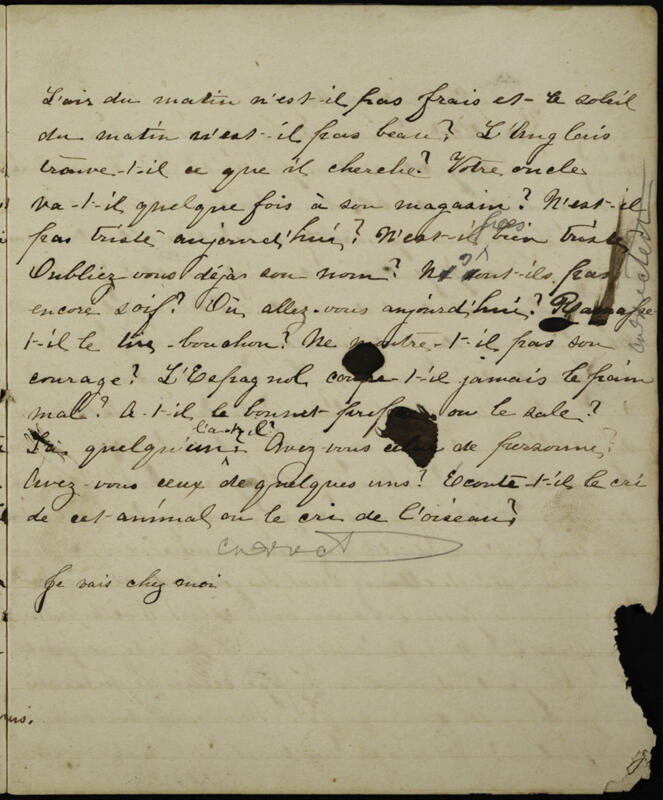 L'air du matin n'est-il pas frais et le soleil
du matin n'est-il pas beau? L'Anglais
trouve-t-il ce que il cherche? Votre oncle
va-t-il quelque fois à son magasin? N'est-il
pas triste aujourd'hui? N'est-il pas bien triste
Oubliez vous déjas son nom? N' ont-ils pas
encore soif? Où allez-vous aujourd'hui? Ramasse
t-il le tire-bouchon? Ne montre-t-il pas son
courage? L'Espagnol coupe-t-il jamais le pain
mal? A-t-il le bonnet ou le sale?
quelqu'un l'a-t-il? Avez-vous celui de personne?
Avez-vous ceux de quelques uns? Ecoute-t-il le cri
de cet animal ou le cri de l'oiseau?
correct
Je vais chez moi